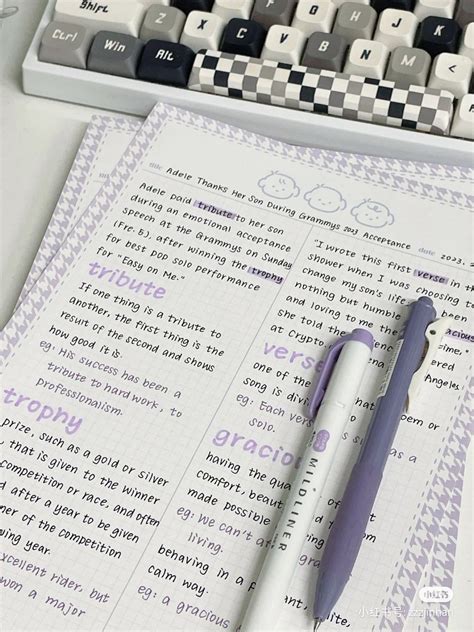 Shift
Z
X
C
V
B
N
M
Ctrl
Win
Alt
title Adele Thanks Her Son During Grammys 2023 Acceptance date 2023.
Adele paid tribute to her son
during an emotional acceptance
speech at the Grammys on Sunday
(Fre. 5), after winning the trophy
for best pop solo performance
for "Easy on Me."
tribute
If one thing is a tribute to
another, the first thing is the
result of the second and shows
how good it is.
eg: His success has been a
tribute to hard work, to
professionalism.
trophy
prize, such as a gold or silver
that is given to the winner
competition or race, and often
d after a year to be given
ner of the competition
wing year.
xcellent rider, but
won a major
"I wrote this first verse in th
shower when I was choosing
change my son's life
nothing but humble
and loving to me the
she told the
at Crypto.
gracious
ered
Angeles
verse
one of the
song is divi
eg: Each vers
solo.
gracious
having the qua
comfort, beaut
made possible
eg: We can't a
living.
behaving in a
calm way.
eg: a gracious
MILDLINER
小红书
小红书号